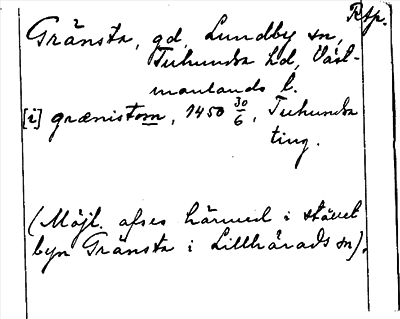 RAp.
Gränsta, gd, Lundby sn,
Tuhundra hd, Väst-
manlands l.
[i] grænistom, 1450 30/6, Tuhundra
ting.
(Möjl. afses härmed i stället
byn Gränsta i Lillhärads sn).